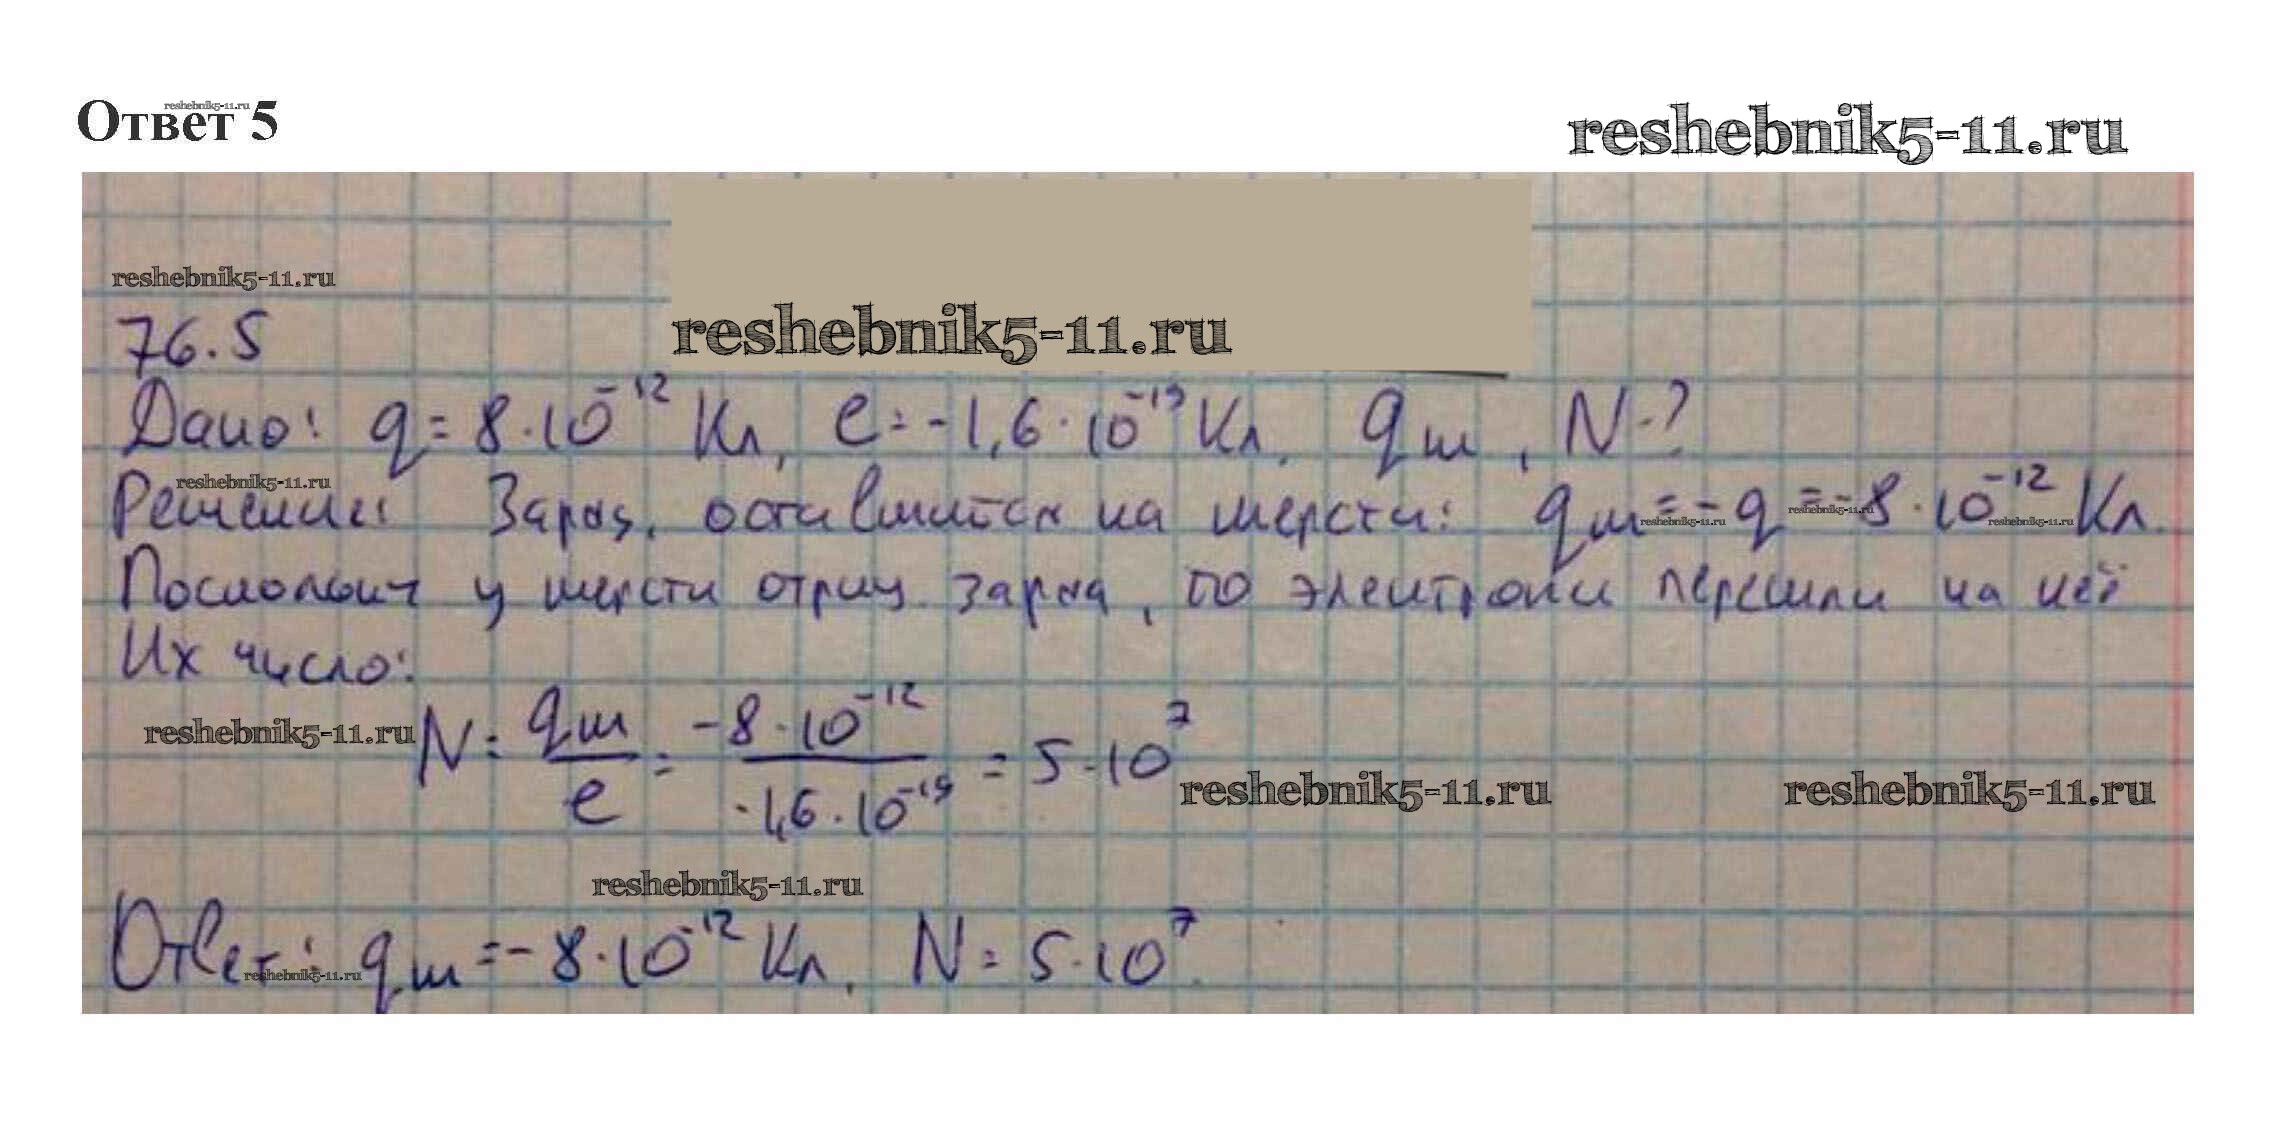 Ответ 5
reshebnik5-11.ru
reshebnik5-11.ru
reshebnik5-11.ru
reshebnik5-11.ru
76.5
Дано: q = 8·10⁻¹² Кл, e = -1,6·10⁻¹⁹ Кл. qш, N-?
reshebnik5-11.ru
Решение: Заряд, оставшийся на шерсти: qш = -q = -8·10⁻¹² Кл.
reshebnik5-11.ru reshebnik5-11.ru reshebnik5-11.ru
Поскольку у шерсти отриц. заряд, то электроны перешли на неё
Их число:
reshebnik5-11.ru
N = qш/e = -8·10⁻¹²/-1,6·10⁻¹⁹ = 5·10⁷
reshebnik5-11.ru reshebnik5-11.ru
reshebnik5-11.ru
Ответ: qш = -8·10⁻¹² Кл, N = 5·10⁷.
reshebnik5-11.ru